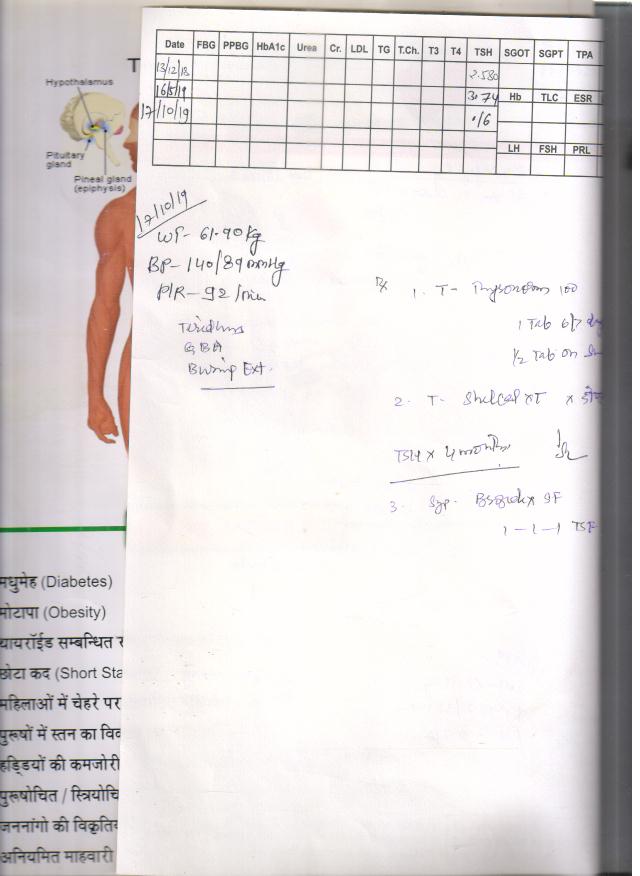 T
Hypothalamus
Pituitary
gland
Pineal gland
(epiphysis)
Date FBG PPBG HbA1c Urea Cr. LDL TG T.Ch. T3 T4 TSH SGOT SGPT TPA
13/12/18 2.580
16/5/19 3.74 Hb TLC ESR
17/10/19 .16
LH FSH PRL
17/10/19
WT- 61.90 kg
BP- 140/89 mmHg
P/R- 92 /min
Rx 1. T- 100
1 Tab 6/7
1/2 Tab on
2. T- Shelcal XT x
TSH x 4 months
3. Syp. SF
1-1-1 TSF
मधुमेह (Diabetes)
मोटापा (Obesity)
थायरॉईड सम्बन्धित
छोटा कद (Short Sta
महिलाओं में चेहरे पर
पुरूषों में स्तन का विक
हड्डियों की कमजोरी
पुरूषोचित / स्त्रियोचि
जननांगो की विकृति
अनियमित माहवारी